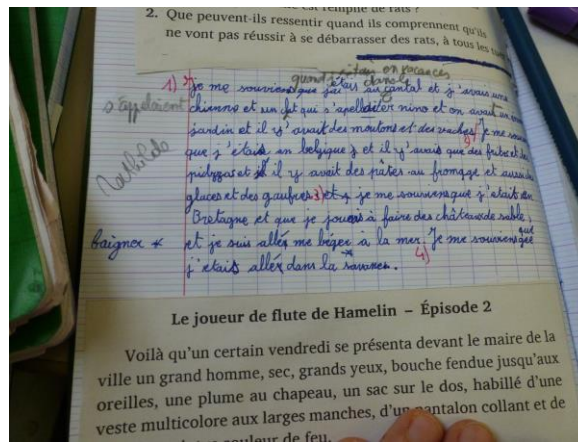 2. Que peuvent-ils ressentir quand ils comprennent qu'ils
ne vont pas réussir à se débarrasser des rats, à tous les
quand j'étais en vacances
1) je me souviens que j'étais dans le cantal et j'avais une
s'appelaient chienne et un qui nino et on avait un
jardin et il y'avait des moutons et des vaches je me
Mathilde
que j'étais en belgique et il y'avais que des frites et
et il y avait des pâtes au fromage et aussi
glaces et des gaufres 3) et je me souviens que j'etait en
Bretagne et que je jouais à faire des châteaux de sable,
baigner * et je suis allé me à la mer. Je me souviens que
4)
j'etais allé dans la
Le joueur de flute de Hamelin – Épisode 2
Voilà qu'un certain vendredi se présenta devant le maire de la
ville un grand homme, sec, grands yeux, bouche fendue jusqu'aux
oreilles, une plume au chapeau, un sac sur le dos, habillé d'une
veste multicolore aux larges manches, d'un pantalon collant et de
couleur de feu.